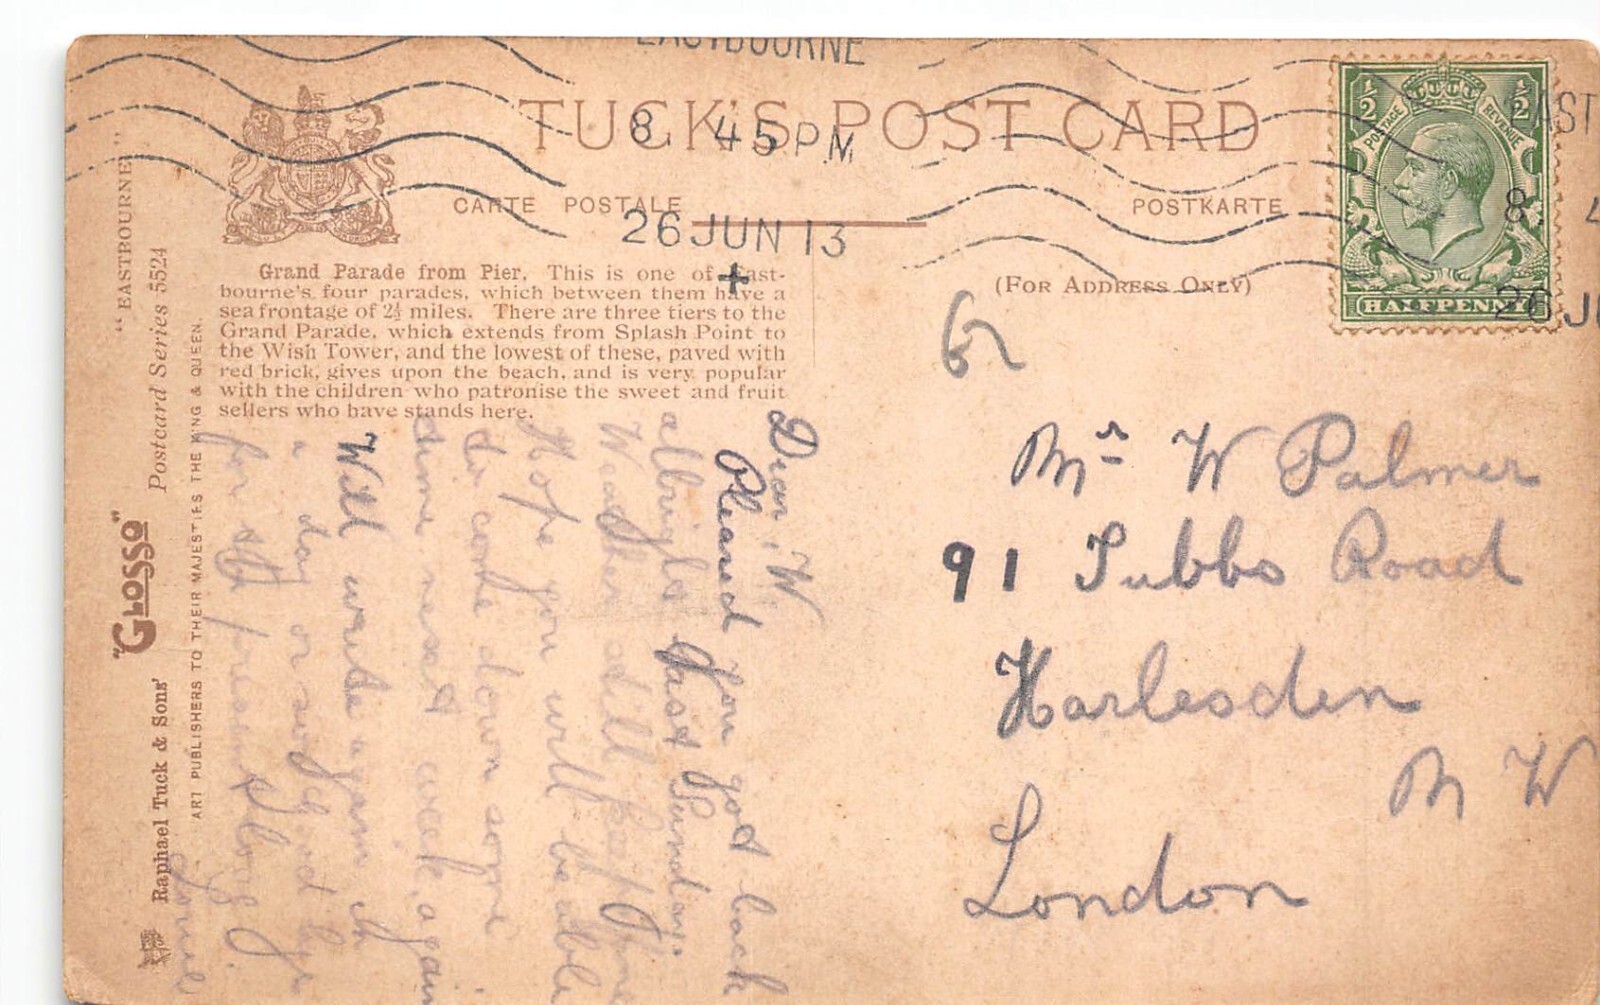 EASTBOURNE
8. 45 PM
26 JUN 13
+
TUCK'S POST CARD
CARTE POSTALE
POSTKARTE
(FOR ADDRESS ONLY)
½ ½
POSTAGE REVENUE
HALFPENNY
EAST
8. 4
26 JU
Grand Parade from Pier. This is one of East-
bourne's four parades, which between them have a
sea frontage of 2½ miles. There are three tiers to the
Grand Parade, which extends from Splash Point to
the Wish Tower, and the lowest of these, paved with
red brick, gives upon the beach, and is very popular
with the children who patronise the sweet and fruit
sellers who have stands here.
"EASTBOURNE"
Postcard Series 5524
"GLOSSO"
Raphael Tuck & Sons'
ART PUBLISHERS TO THEIR MAJESTIES THE KING & QUEEN.
Dear W
Pleased you got back
allright last Sunday.
Weather still keeps fine
Hope you will be able
to come down some
time next week again
Will write again in
a day or so Good bye
for the present
62
Mr W Palmer
91 Tubbs Road
Harlesden
N W
London